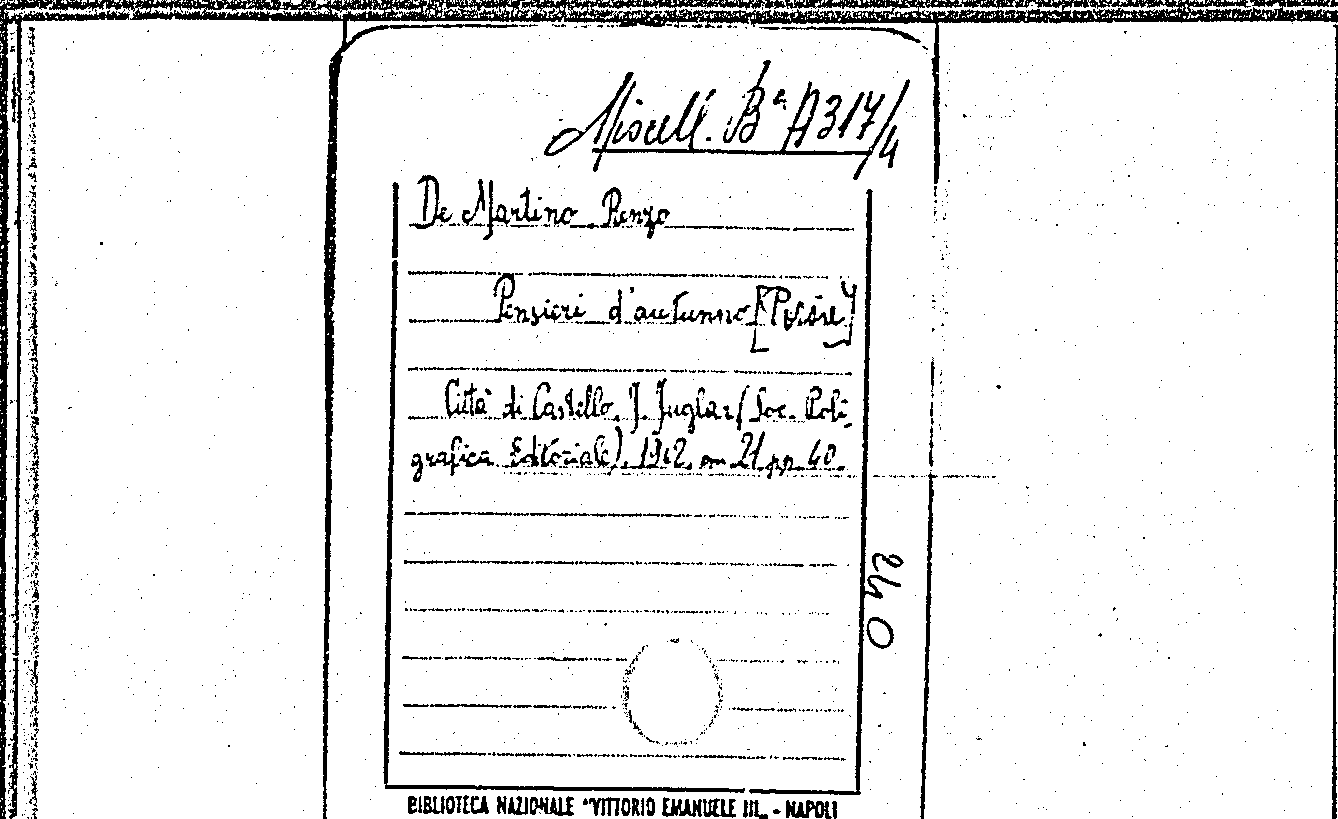 Miscell. Bª A317/4
De Martino Renzo
Pensieri d'autunno [Poesie]
Città di Castello, J. Juglar (Soc. Poli-
grafica Editoriale), 1942, in 21 pp. 40.
240
BIBLIOTECA NAZIONALE "VITTORIO EMANUELE III„ - NAPOLI